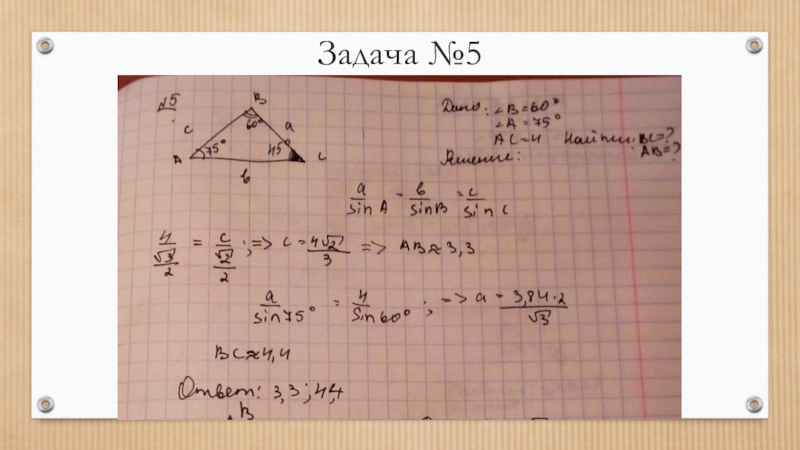 Задача №5
№5
B
c
60°
a
A
75°
45°
C
b
Дано: ∠B=60°
∠A=75°
AC=4 Найти: BC=?
AB=?
Решение:
a/sin A = b/sin B = c/sin C
4/(√3/2) = c/(√2/2); => c = 4√2/3 => AB≈3,3
a/sin75° = 4/sin60°; => a = 3,84·2/√3
BC≈4,4
Ответ: 3,3; 4,4
B